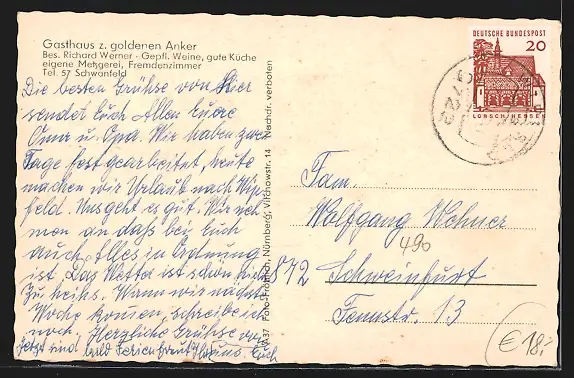 Gasthaus z. goldenen Anker
Bes. Richard Werner · Gepfl. Weine, gute Küche
eigene Metzgerei, Fremdenzimmer
Tel. 57 Schwanfeld
Die besten Grühse von hier
sendet Euch Allen Eure
Oma u. Opa. Wir haben zwei
Tage fest gearbeitet, heute
machen wir Urlaub nach Wip-
feld. Uns geht es gut. Wir neh-
men an daß bei Euch
auch alles in Ordnung
ist. Das Wetter ist schön
zu heiks. Wann wir nächste
Woche komen, schreibe ich
noch. Herzliche Grühse von
Jetzt sind bald Ferien uns. Euch
Foto-Fröhlich, Nürnberg, Virchowstr. 14 Nachdr. verboten
DEUTSCHE BUNDESPOST
20
LORSCH/HESSEN
Fam.
Wolfgang Wehner
490
872 Schweinfurt
Fennstr. 13
€ 18,-